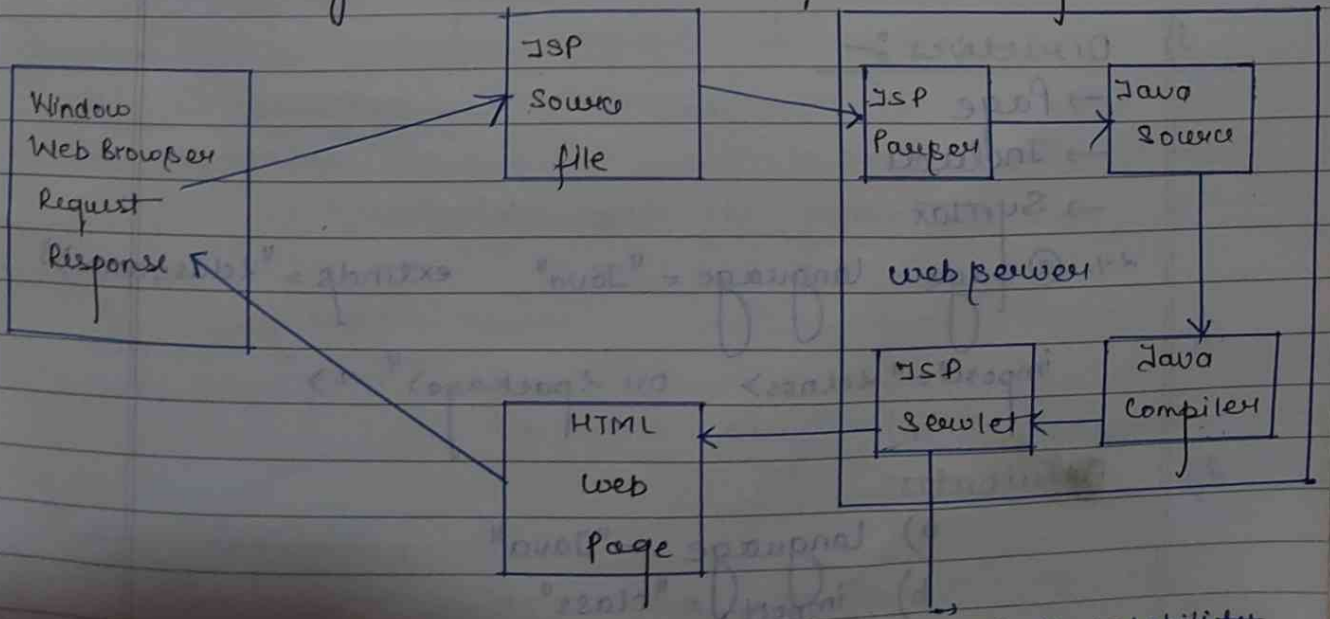 Window
Web Browser
Request
Response
JSP
Source
file
JSP
Parser
Java
Source
web server
Java
Compiler
JSP
Servlet
HTML
web
Page